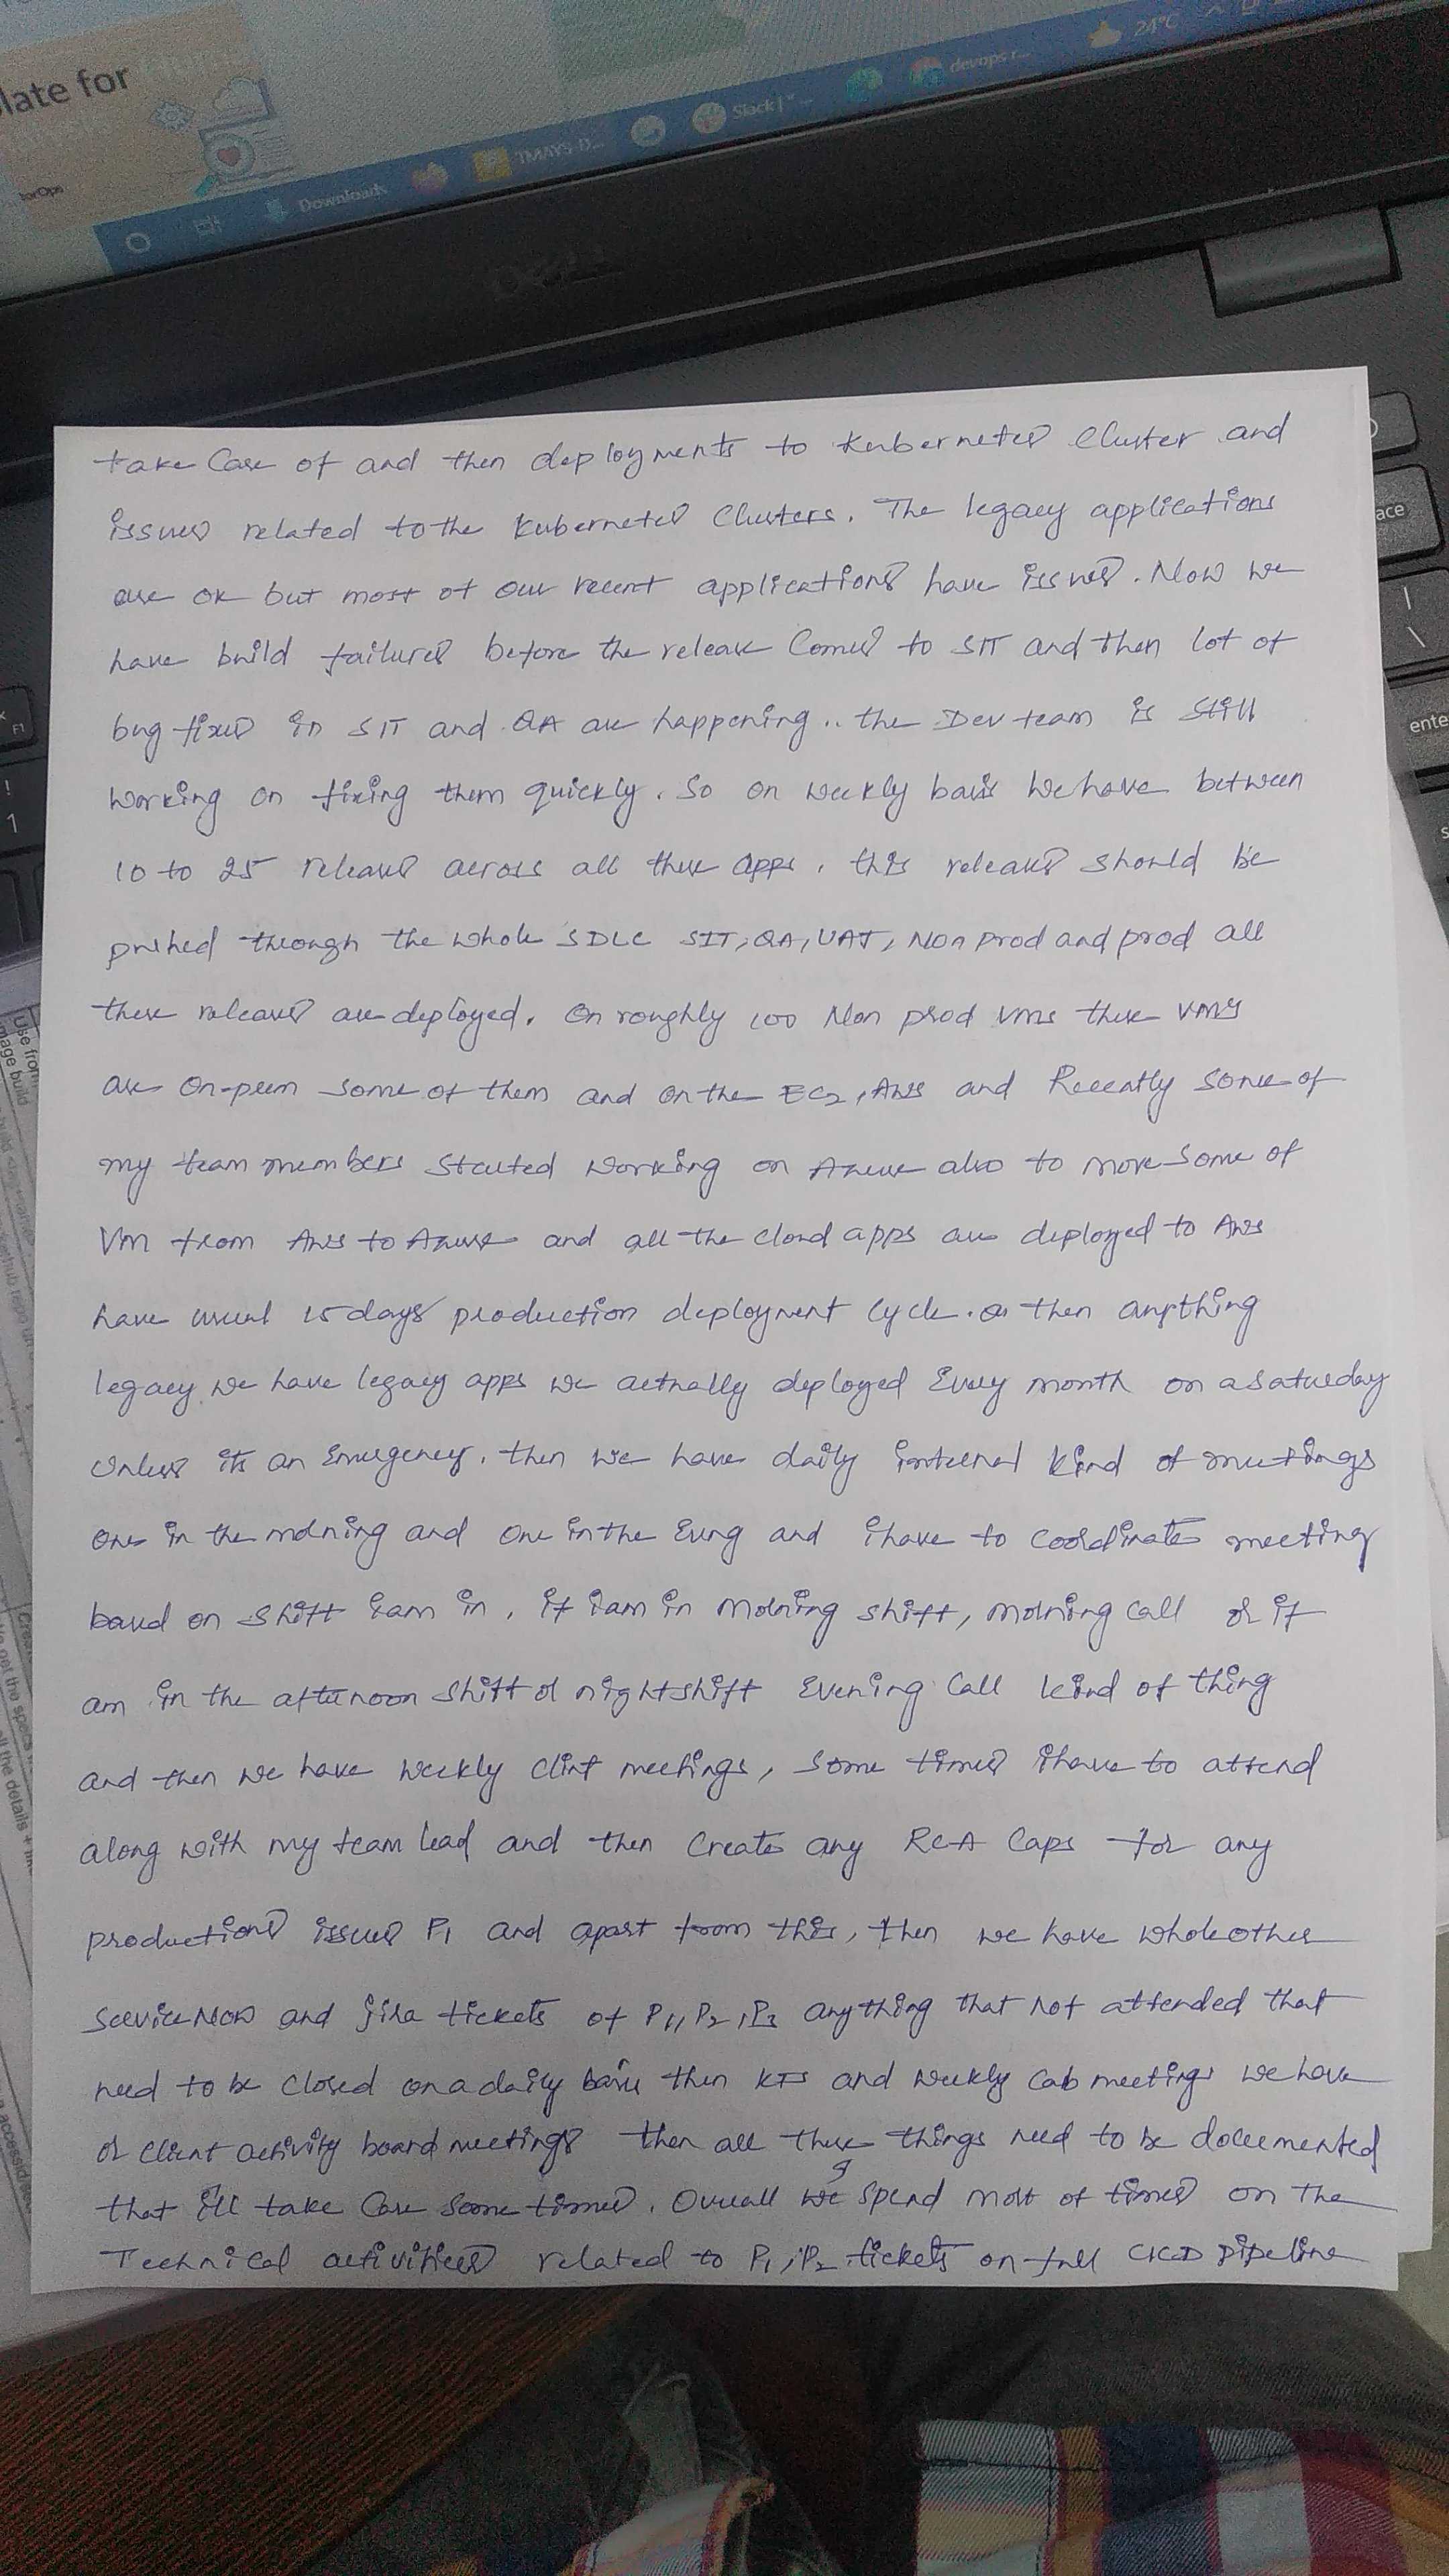 late for
torOps
Downloads
TMAYS-D...
Slack | * ...
devops r...
24°C
DELL
take Care of and then deployments to Kubernetes Cluster and
issues related to the Kubernetes Clusters. The legacy applications
are ok but most of our recent applications have issues. Now we
have build failures before the release Comes to SIT and then lot of
bug fixes in SIT and QA are happening.. the Dev team is still
working on fixing them quickly. So on weekly basis we have between
10 to 25 releases across all these apps, this releases should be
pushed through the whole SDLC SIT, QA, UAT, Non prod and prod all
these releases are deployed. On roughly 100 Non prod VMs these VMs
are On-prem some of them and on the EC2, AWS and Recently some of
my team members started working on Azure also to move some of
VM from AWS to Azure and all the cloud apps are deployed to AWS
have usual 15 days production deployment cycle. then anything
legacy we have legacy apps we actually deployed Every month on a saturday
Unless its an Emergency. then we have daily internal kind of meetings
one in the morning and one in the Evng and i have to coordinate meeting
based on shift iam in, if iam in morning shift, morning call or if
am in the afternoon shift or nightshift Evening Call kind of thing
and then we have weekly clint meetings, some times ihave to attend
along with my team lead and then Create any RCA Caps for any
productions issues P1 and apart from this, then we have whole other
ServiceNow and jira tickets of P1, P2, P3 anything that not attended that
need to be closed on a daily basis then KTs and weekly Cab meetings we have
or client activity board meetings then all these things need to be documented
that i'll take Care some times. Overall we spend most of times on the
Technical activities related to P1, P2 tickets on full CICD pipeline
F1
!
1
ace
|
\
ente
Use from
nage build
get the specs
all the details +